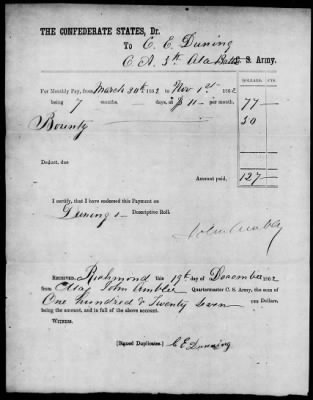 THE CONFEDERATE STATES, Dr.
To C. E. Duning
Co A. 5th Ala Batt C. S. Army.
DOLLARS. CTS.
For Monthly Pay, from March 30th 1862 to Nov 1st 1862
being 7 months, days, at $11 per month, 77
Bounty 50
Deduct, due
Amount paid, 127
I certify, that I have endorsed this Payment on
Duning's Descriptive Roll.
John Ambler
RECEIVED, Richmond this 19th day of December 1862
from Maj John Ambler Quartermaster C. S. Army, the sum of
One hundred & Twenty Seven Dollars,
being the amount, and in full of the above account.
WITNESS.
(Signed Duplicates.) C E Dunning